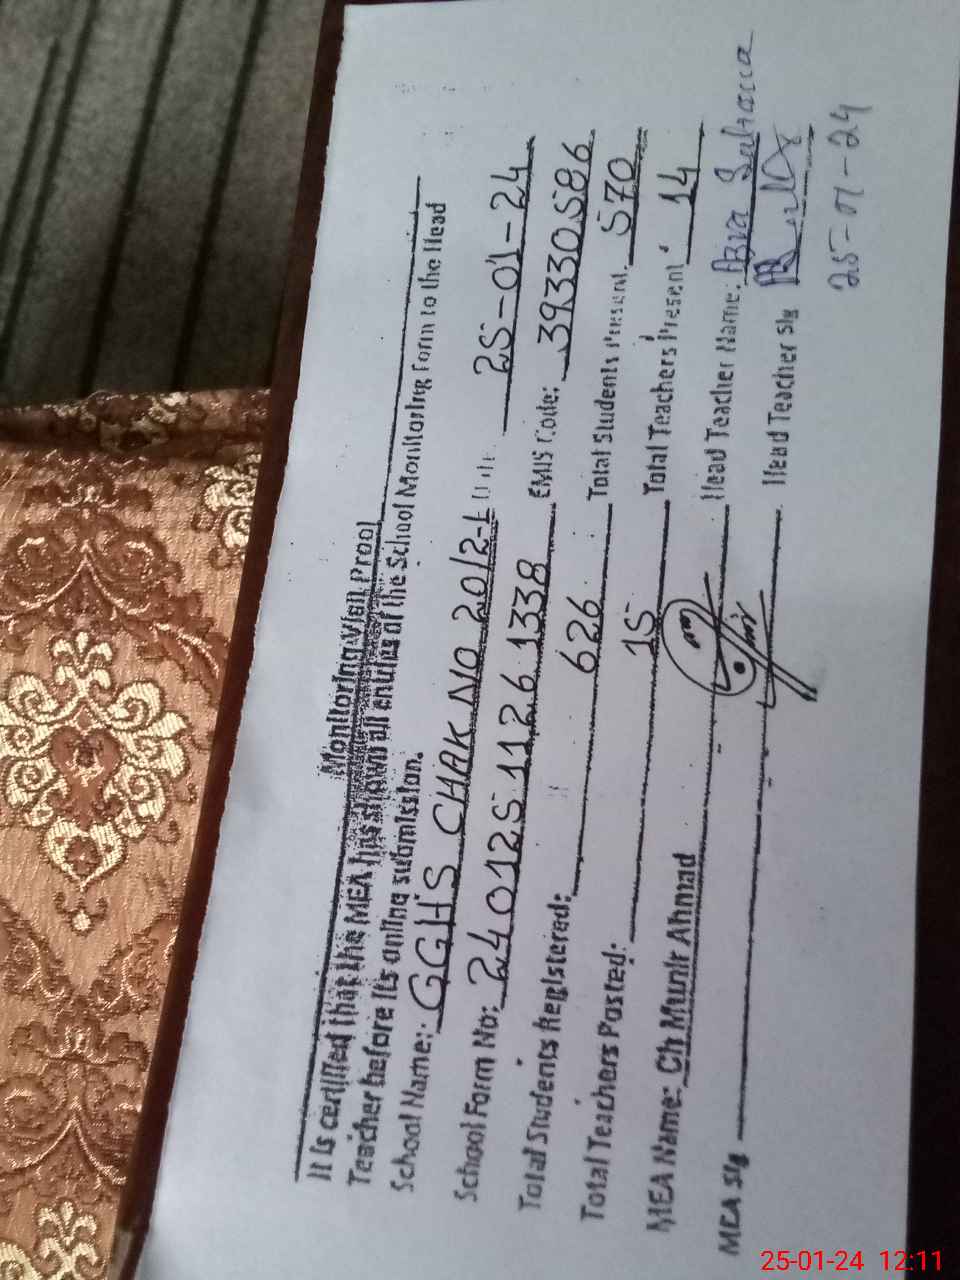 Monitoring Visit Proof
It is certified that the MEA has shown all entries of the School Monitoring Form to the Head
Teacher before its online submission.
School Name: GGHS CHAK NO 20/2-L Date: 25-01-24
School Form No: 240125 1126 1338 EMIS Code: 39330586
Total Students Registered: 626 Total Students Present: 570
Total Teachers Posted: 15 Total Teachers Present 14
MEA Name: Ch Munir Ahmad Head Teacher Name: Azra Sultana
MEA Sig Head Teacher Sig
25-01-24
25-01-24 12:11